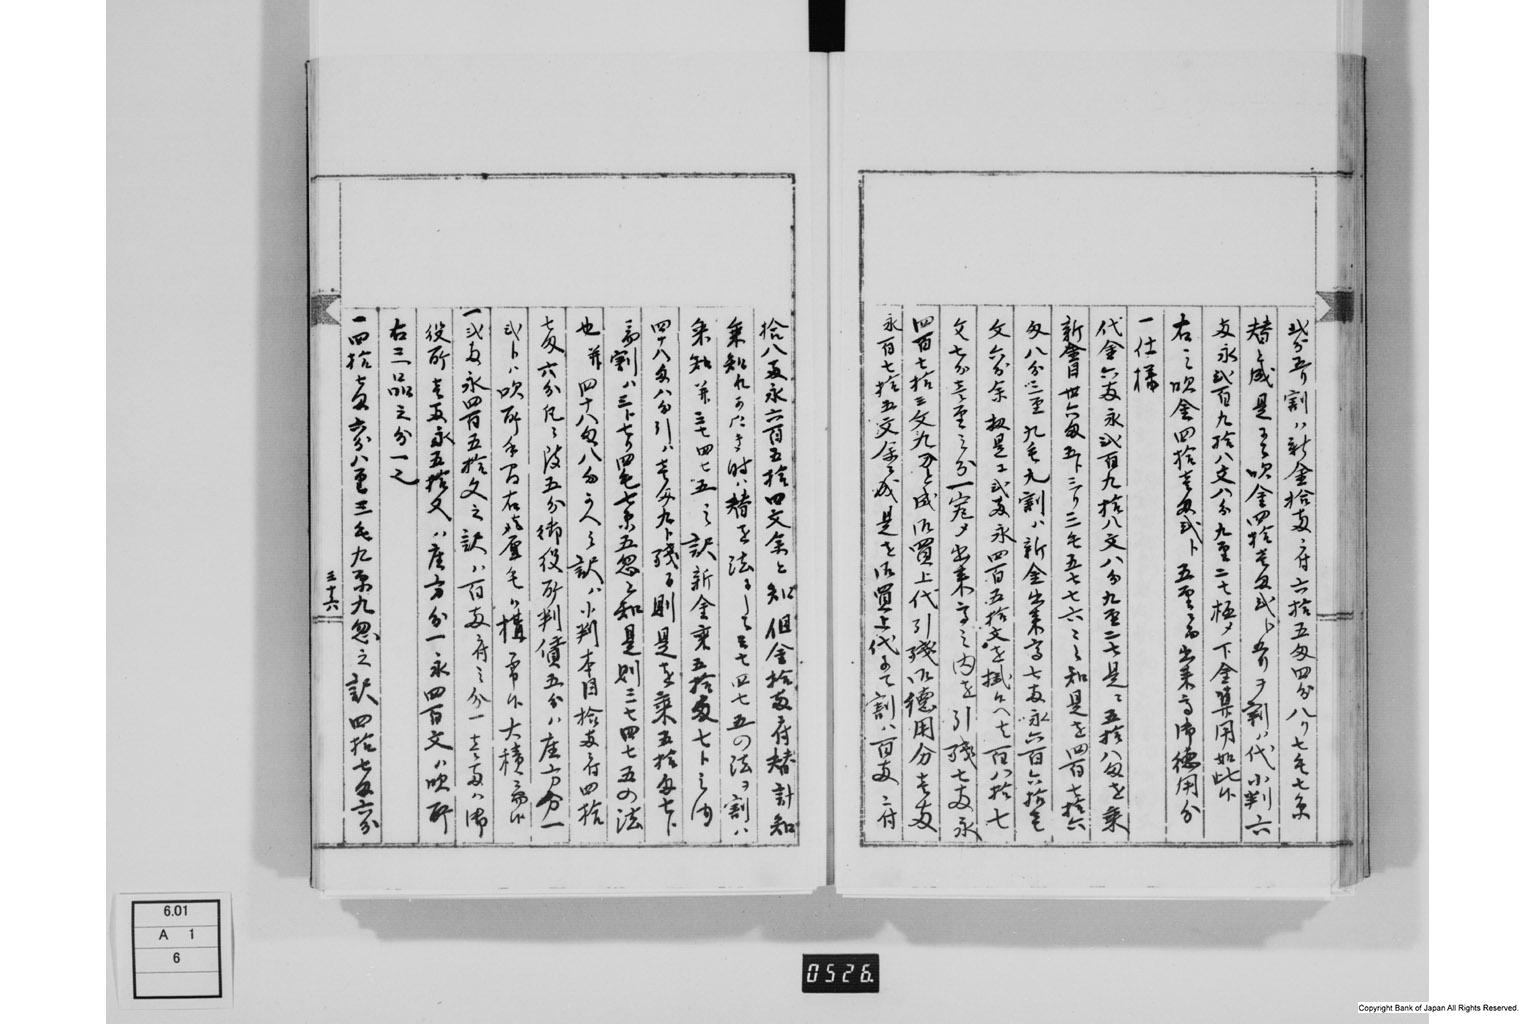 弐分五り割ハ新金拾両ニ付六拾五匁四分八り七毛七糸
替ニ成是ヲ以吹金四拾壱匁弐ト五りヲ割ハ代小判六
両永弐百九拾八文八分九厘二七極メ下金集用如此ニ御座候
右之吹金四拾壱匁弐ト五厘ニ而出来高御徳用分
一仕様
代金六両永弐百九拾八文八分九厘二七是ニ五拾八匁を乗
新金目卅六匁五ト三り三毛五七七六ニ知是を四百七拾六
匁八分三厘九毛九割ハ新金出来高七両永六百六拾壱
文六分余扨是江弐両永四百五拾文を掛候ヘ者百八拾七
文七分壱厘之分一定メ出来高之内を引残七両永
四百七拾三文九分ニ成御買上代引残御徳用分壱両
永百七拾五文余ニ成是を御買上代ニて割ハ百両ニ付
拾八両永六百五拾四文余と知但金拾両ニ付替計知
乗知れかたき時ハ替を法にして三七四七五の法ヲ割ハ
乗知並三七四七五之訳新金乗五拾両七ト之内
四十八匁八分引ハ壱匁九ト残る則是を乗五拾両七ト
ニ而割ハ三ト七り四毛七糸五忽ニ知是則三七四七五の法
也並四十八匁八分与入之訳ハ小判本目拾両ニ付四拾
七匁六分凡ニ役五分御役所判賃五分ハ座方分一
弐トハ吹所手間右ハ厘毛ニ構無御座大積ニ而御座候
一弐両永四百五拾文之訳ハ百両ニ付之分一壱両ハ御
役所壱両永五拾文ハ座方分一永四百文ハ吹所
右三品之分一也
一四拾七匁六分八厘三毛九糸九忽之訳四拾七匁六分
三十六
6.01
A 1
6
0526.
Copyright Bank of Japan All Rights Reserved.